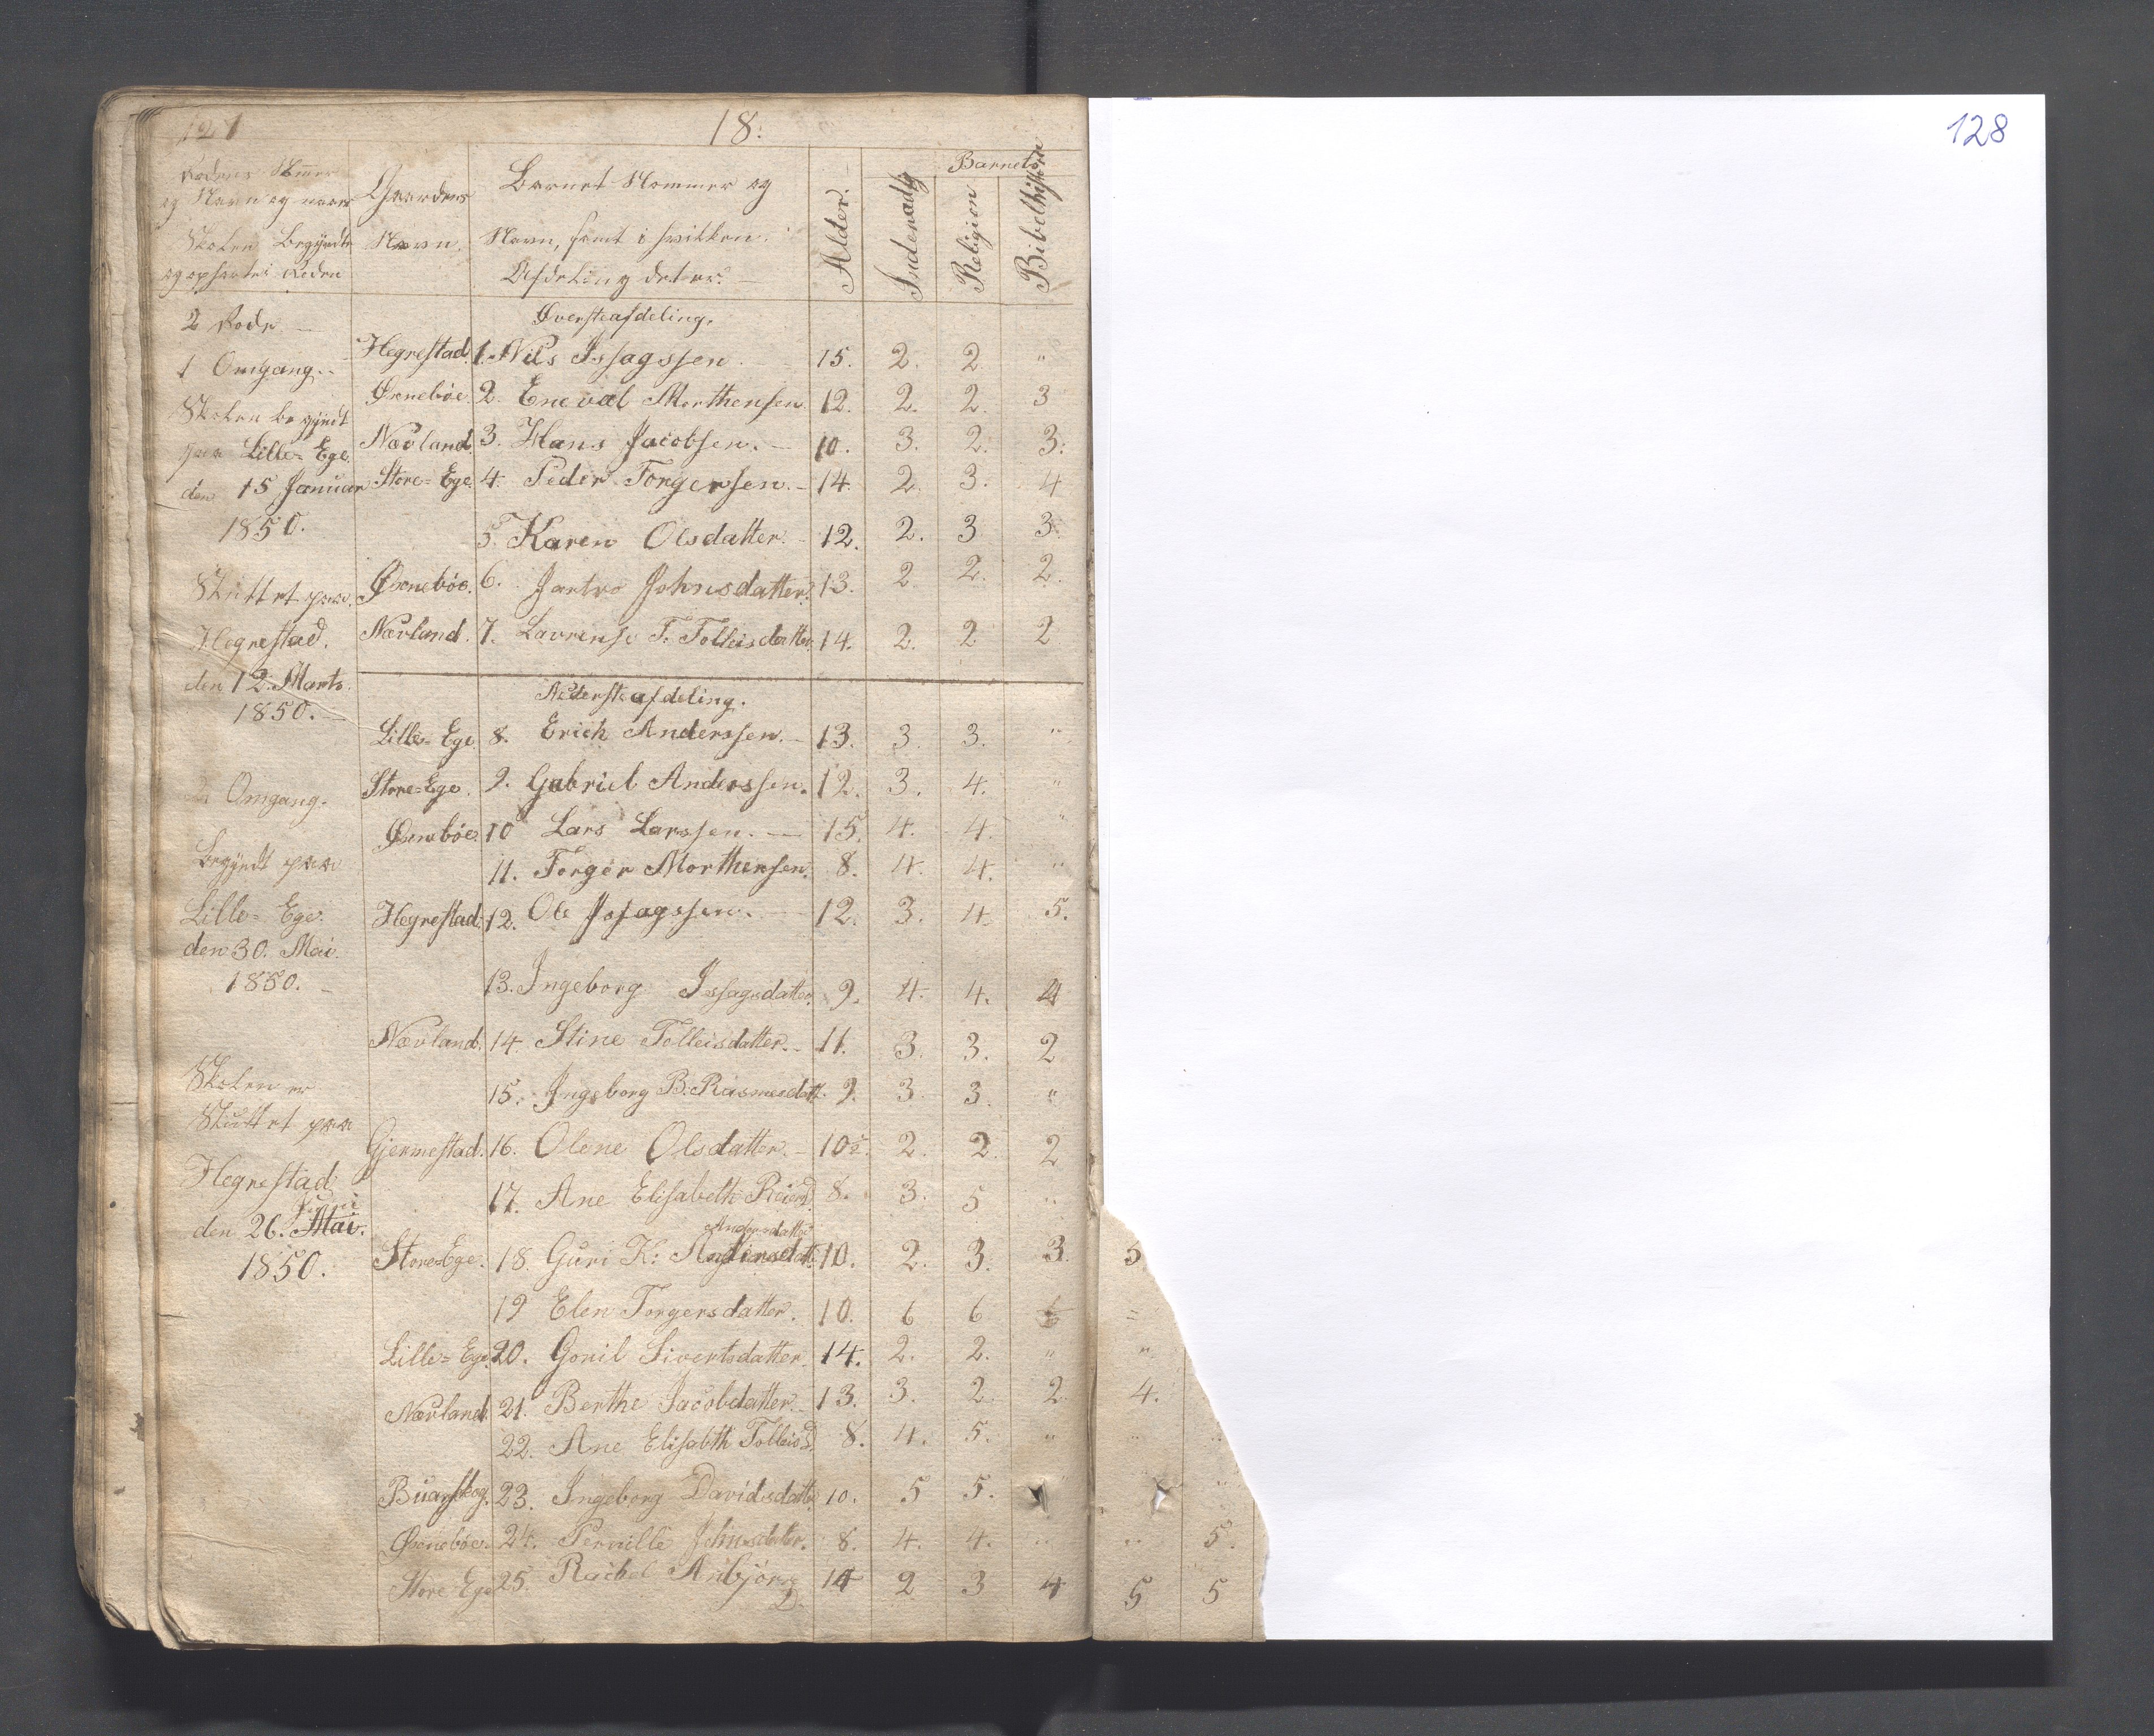 127
18.
128
Rodens Nummer
og Navn og naar
Skolen begyndte
og ophørte i Roden
Gaardens
Navn.
Barnets Nommer og
Navn, samt i hvilken
Afdeling det er.
Alder.
Barnets
Indenadlg
Religion
Bibelhistorie
2 Rode
1 Omgang.
Skolen begyndt
paa Lille=Ege
den 15 Januar
1850.
Sluttet paa
Hegrestad.
den 12. Marts.
1850.
Omgang.
Begyndt paa
Lille=Ege.
den 30. Mai.
1850.
Skolen er
Sluttet paa
Hegrestad
Juni
den 26. Mai.
1850.
Øversteafdeling.
Hegrestad. 1. Nils Issagssen. 15. 2. 2. "
Ørnebøe. 2. Eneval Morthensen. 12. 2. 2. 3
Nævland. 3. Hans Jacobsen. 10. 3. 2. 3.
Store=Ege. 4. Peder Torgersen. 14. 2. 3. 4
5. Karen Olsdatter. 12. 2. 3 3.
Ørnebøe. 6. Jartro Johnsdatter. 13. 2 2. 2.
Nævland. 7. Lavrense T. Tolleisdatter 14. 2. 2 2
Nedersteafdeling.
Lille=Ege 8. Erich Anderssen. 13. 3. 3. "
Store=Ege. 9. Gabriel Anderssen. 12. 3. 4. "
Ørnebøe 10 Lars Larssen. 15. 4. 4. "
11. Torger Morthensen. 8. 4. 4. "
Hegrestad. 12. Ole Issagssen. 12. 3. 4. 5.
13. Ingeborg Issagsdatter. 9. 4. 4. 4
Nævland. 14. Stine Tolleisdatter. 11. 3. 3. 2
15. Ingeborg B. Rasmusdatt. 9. 3. 3. "
Gjermestad. 16. Olene Olsdatter. 10 2. 2. 2
17. Ane Elisabeth Reiersd. 8. 3. 5 "
Andersdatter
Store=Ege. 18. Guri K: 10. 2. 3. 3. 5
19 Elen Torgersdatter. 10. 6 6 6 =
Lille=Ege 20. Gonil Sivertsdatter. 14. 2. 2. " "
Nævland. 21. Berthe Jacobdatter. 13. 3. 2. 2. 4.
22. Ane Elisabth Tolleisd. 8. 4. 5. " " "
Buarskog. 23. Ingeborg Davidsdatter 10. 5 5. " "
Ørnebøe. 24. Pernille Johnsdatter. 8. 4. 4. " " 5.
Store Ege 25. Rachel Asbjörg D. 14 2 3 4 5 5